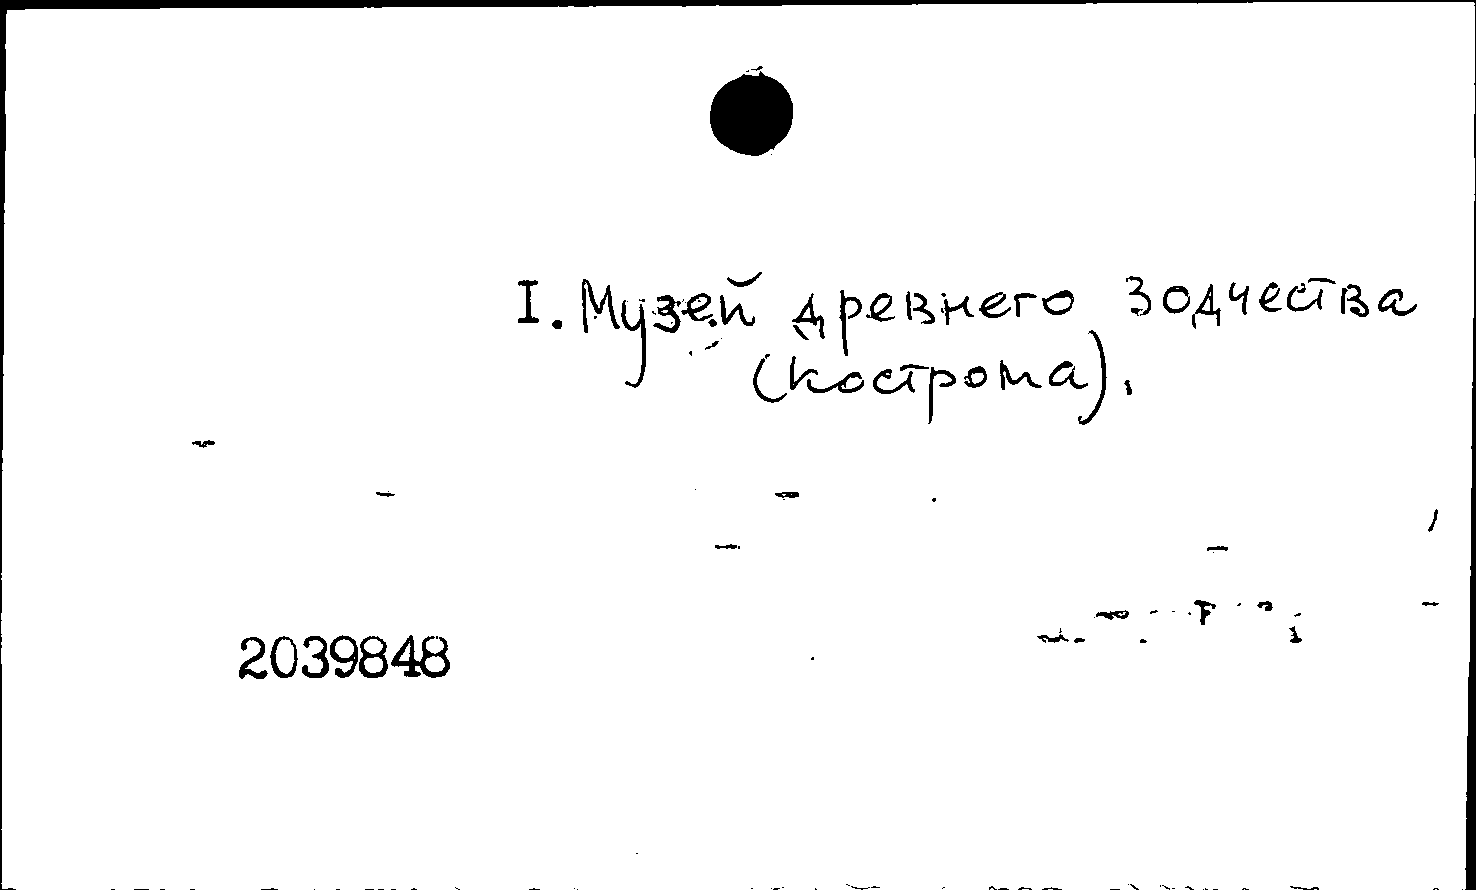 I. Музей древнего зодчества
(Кострома).
2039848